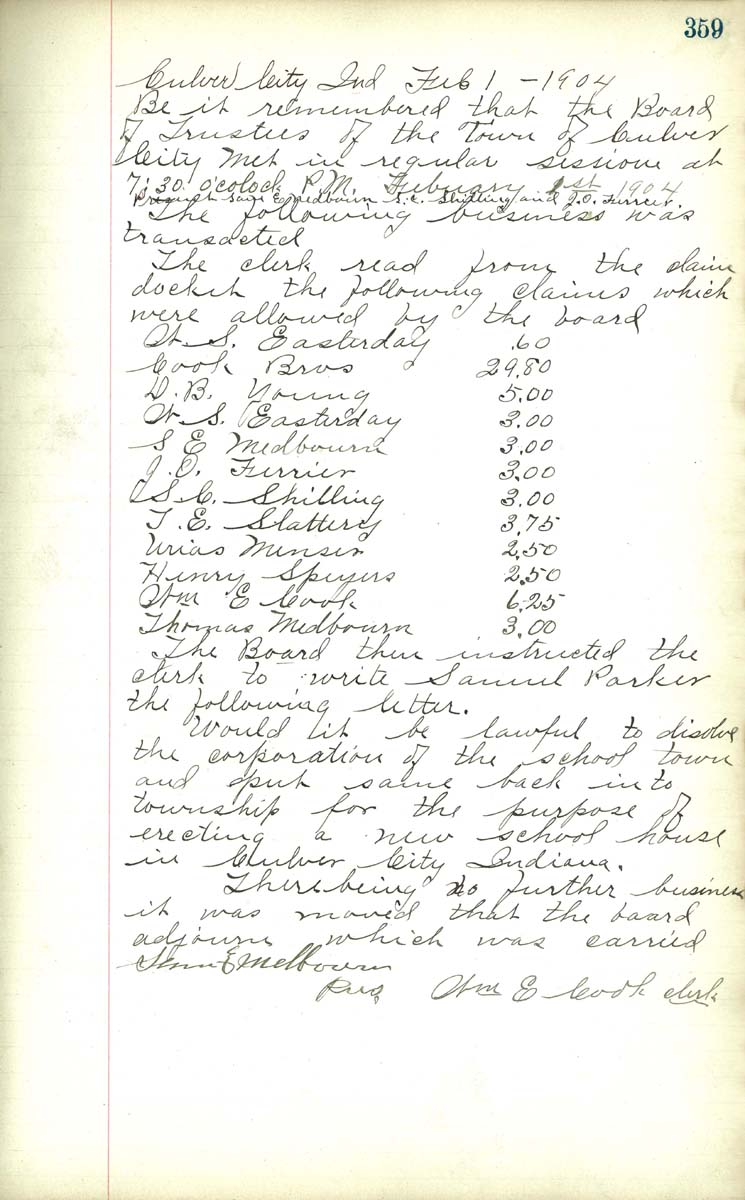 359
Culver City Ind Feb 1 - 1904
Be it remembered that the Board
of Trustees of the Town of Culver
City Met in regular sessione at
7:30 o'colock P.M. Febuary 1st 1904
Present E Medbourn S.C. Shilling and J.O. Ferrier.
The following business was
transacted
The clerk read from the claim
docket the following claims which
were allowed by the board
W. S. Easterday .60
Cook Bros 29.80
D. B. Young 5.00
W. S. Easterday 3.00
S E Medbourn 3.00
J. O. Ferrier 3.00
S. C. Shilling 3.00
T. E. Slattery 3.75
Urias Menser 2.50
Henry Speyers 2.50
Wm E Cook 6.25
Thomas Medbourn 3.00
The Board then instructed the
clerk to write Samuel Parker
the following letter.
Would it be lawful to disolve
the corporation of the school town
and put same back into
township for the purpose of
erecting a new school house
in Culver City Indiana.
There being no further business
it was moved that the board
adjourn which was carried
E Medbourn
Pres Wm E Cook clerk